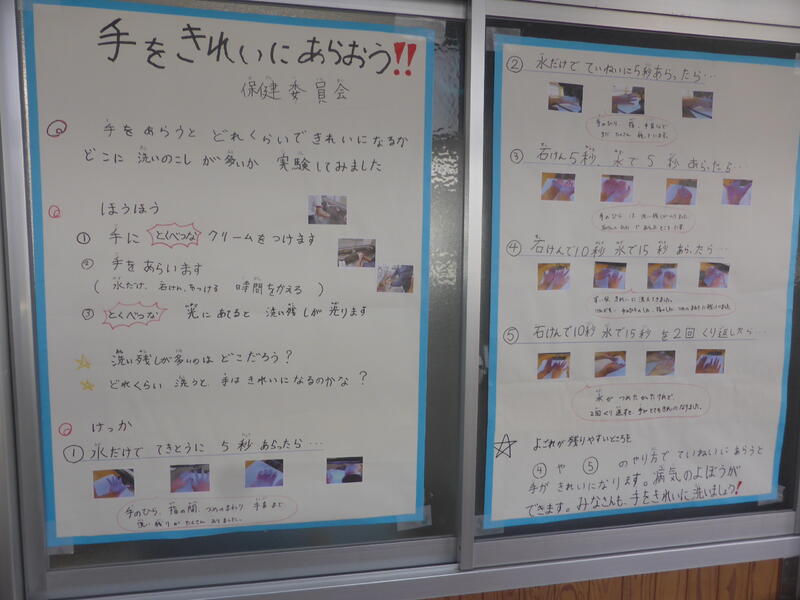 手をきれいにあらおう!!
保健委員会
手をあらうと どれくらいできれいになるか
どこに 洗いのこし が 多いか 実験してみました
ほうほう
① 手に とくべつな クリームをつけます
② 手をあらいます
(水だけ、石けんをつける 時間をかえる)
③ とくべつな 光にあてると 洗い残しが 光ります
☆ 洗い残しが多いのは どこだろう?
☆ どれくらい 洗うと、手は きれいになるのかな?
けっか
① 水だけで てきとうに 5秒 あらったら…
手のひら、指の間、つめのまわり 手首まで
洗い残りが たくさん ありました。
② 水だけで ていねいに5秒あらったら…
手のひり、指、手首など
まだ たくさん 残っています。
③ 石けん5秒、水で5秒 あらったら…
手のひら は 洗い残りがへりました。
④ 石けんで10秒 水で15秒 あらったら…
きれいに 洗えてきました。
⑤ 石けんで10秒 水で15秒 を2回 くり返したら…
水が つめたかったけれど、
2回くり返すと、手がとてもきれいになりました。
☆ よごれが残りやすいところを
④ や ⑤ のやり方で ていねいにあらうと
手が きれいになります。病気のよぼうが
できます。みなさんも、手をきれいに洗いましょう!